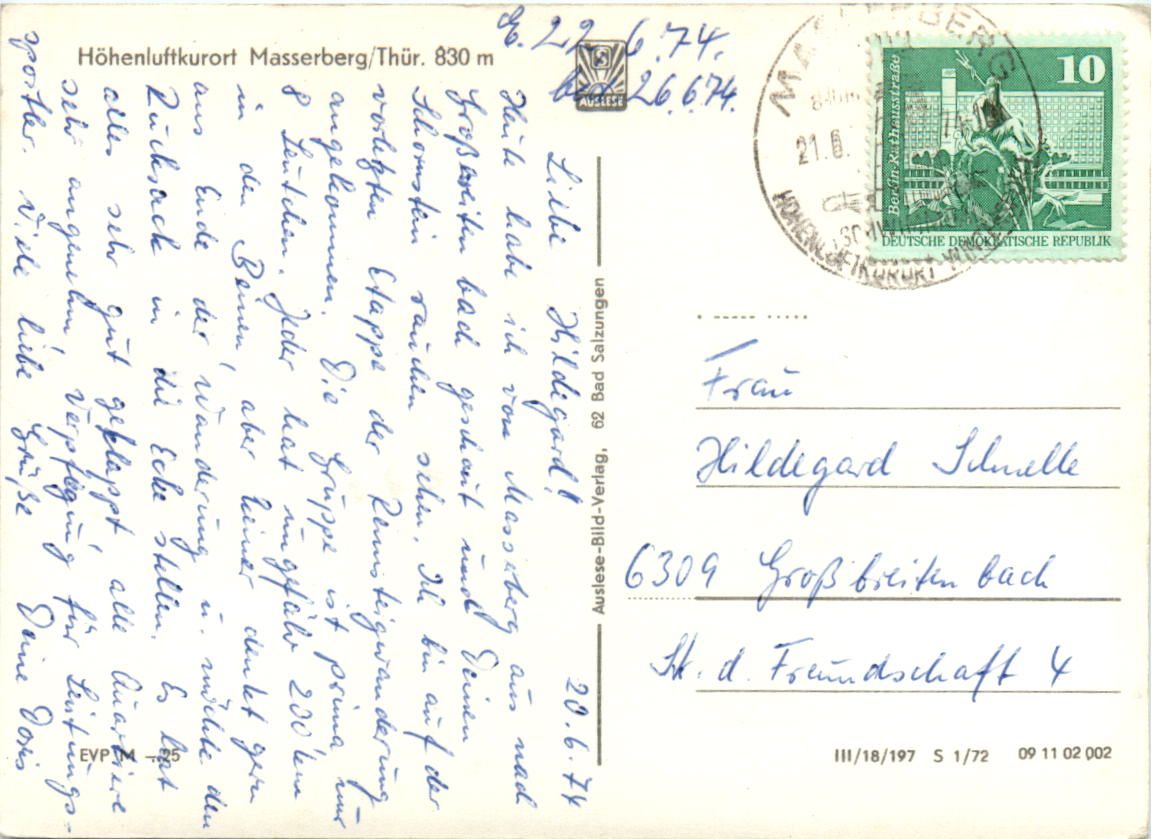 Höhenluftkurort Masserberg/Thür. 830 m
22.6.74.
26.6.74.
AUSLESE
20.6.74
Liebe Hildegard!
Heute habe ich von Masserberg aus nach
Großbreitenbach geschaut und Deinen
Schornstein rauchen sehen. Ich bin auf der
vorletzten Etappe der Rennsteigwanderung
angekommen. Die Gruppe ist prima nur
8 Leutchen. Jeder hat ungefähr 200 km
in den Beinen, aber keiner denkt gern
ans Ende der Wanderung u. möchte den
Rucksack in die Ecke stellen. Es hat
alles sehr gut geklappt, alle Quartiere
sehr angenehm, Verpflegung für Leistungs-
sportler. Viele liebe Grüße Deine Doris
EVP M -,25
Auslese-Bild-Verlag, 62 Bad Salzungen
MASSERBERG
21.6.
HÖHENLUFTKURORT
10
Berlin-Rathausstraße
DEUTSCHE DEMOKRATISCHE REPUBLIK
Frau
Hildegard Schnelle
6309 Großbreitenbach
Str. d. Freundschaft 4
III/18/197 S 1/72 09 11 02 002